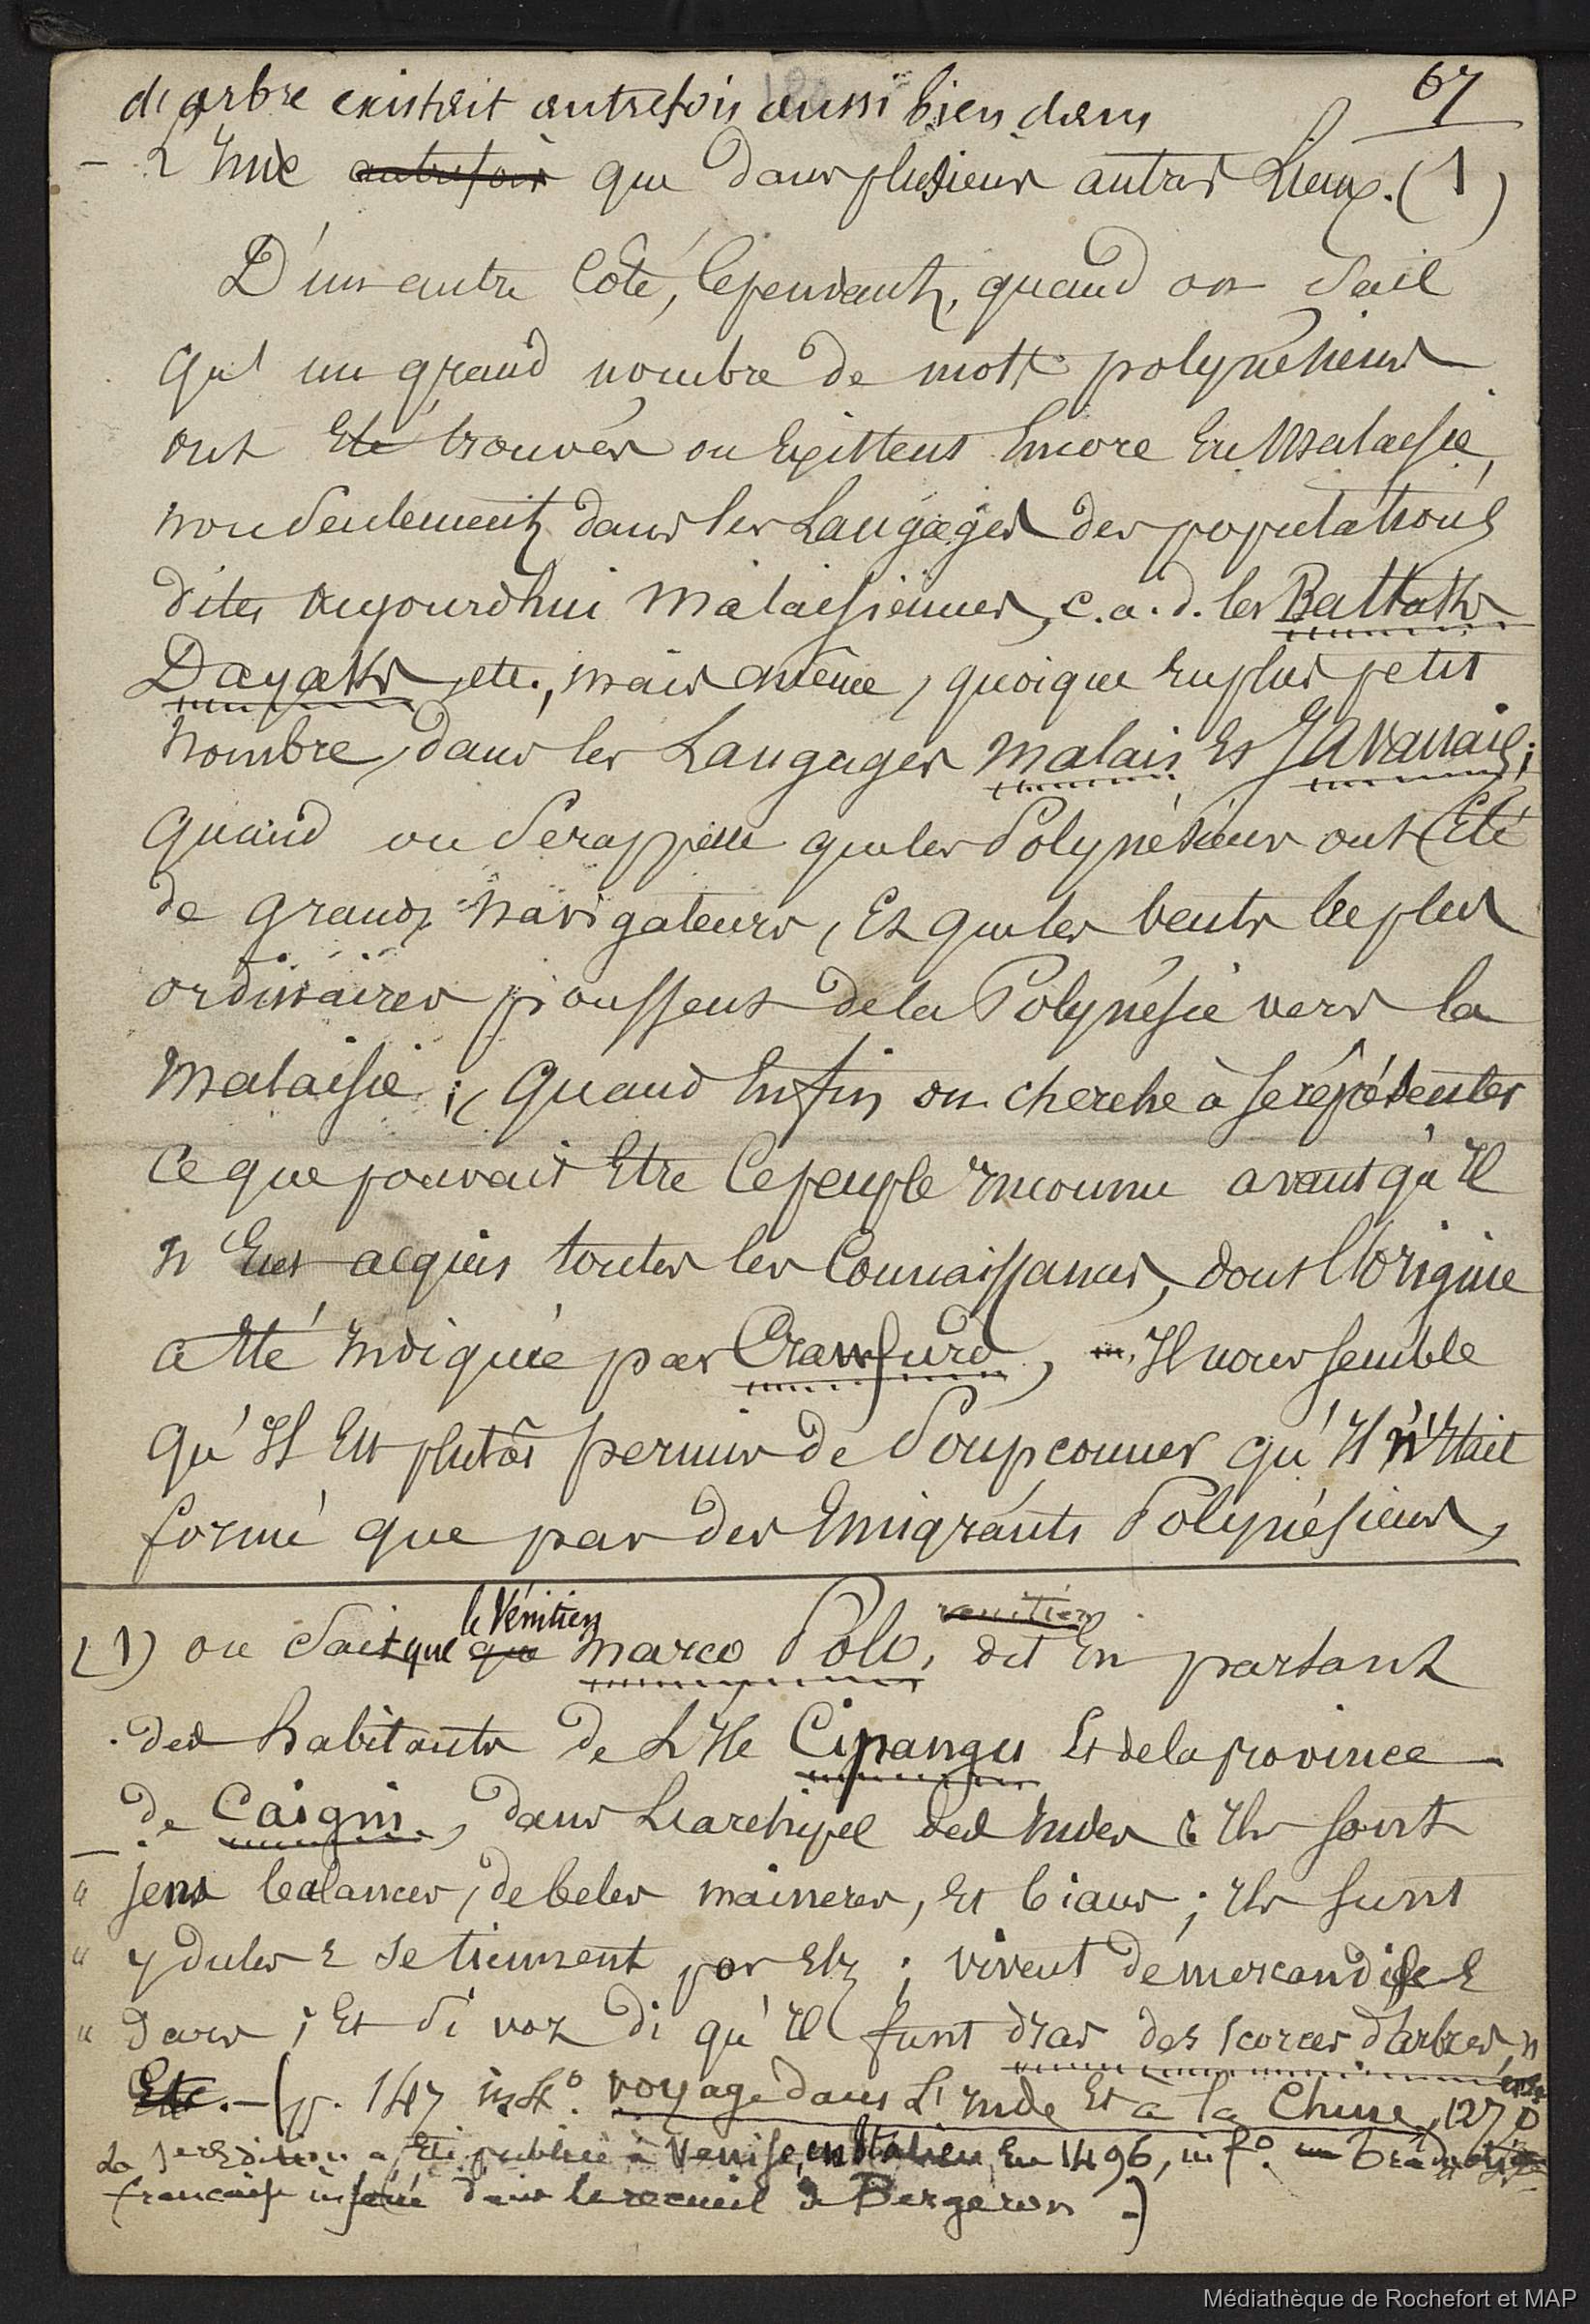 67
d'arbre existait autrefois aussi bien dans
– L'Inde autrefois que dans plusieurs autres Lieux. (1)
D'un autre Côté, Cependant, quand on Sait
qu'un grand nombre de mots polynésiens
ont Eté trouvés ou Existent Encore En Malaisie,
non Seulement dans les Langages des populations
dites aujourd'hui malaisiennes, c.a.d. les Battaks
Dayaks, etc., mais même, quoique En plus petit
nombre, dans les Langages malais Et Javanais;
quand on Se rappelle que les Polynésiens ont Eté
de grands navigateurs, Et que les vents les plus
ordinaires poussent de la Polynésie vers la
Malaisie; quand Enfin on cherche à Se représenter
Ce que pouvait Etre Ce peuple Inconnu avant qu'Il
n'Eut acquis toutes les Connaissances, dont l'Origine
a Eté Indiquée par Crawfurd, Il nous semble
qu'Il Est plutôt permis de Soupconner qu'Il n'Etait
formé que par des Emigrants Polynésiens,
(1) on Sait que que le Vénitien Marco Polo, venitien dit En parlant
des habitants de L'Ile Cipangu Et de la province
de Caigin, dans L'archipel des Indes « Ils sont
« jens balances, de beles maineres, Et biaus; Ils sunt
« ydules E se tiennent por Elz; vivent de mercandise E
« d'ars; Et Si voz di qu'Il funt dras des scorces d'arbres »
Etc. – (p. 147 in 4°. voyage dans L'Inde Et à la Chine, 1270
La 1ere Edition a Eté publiée à Venise, en Italien En 1496, in f°.
française insérée dans le recueil de Bergeron –)
Médiathèque de Rochefort et MAP